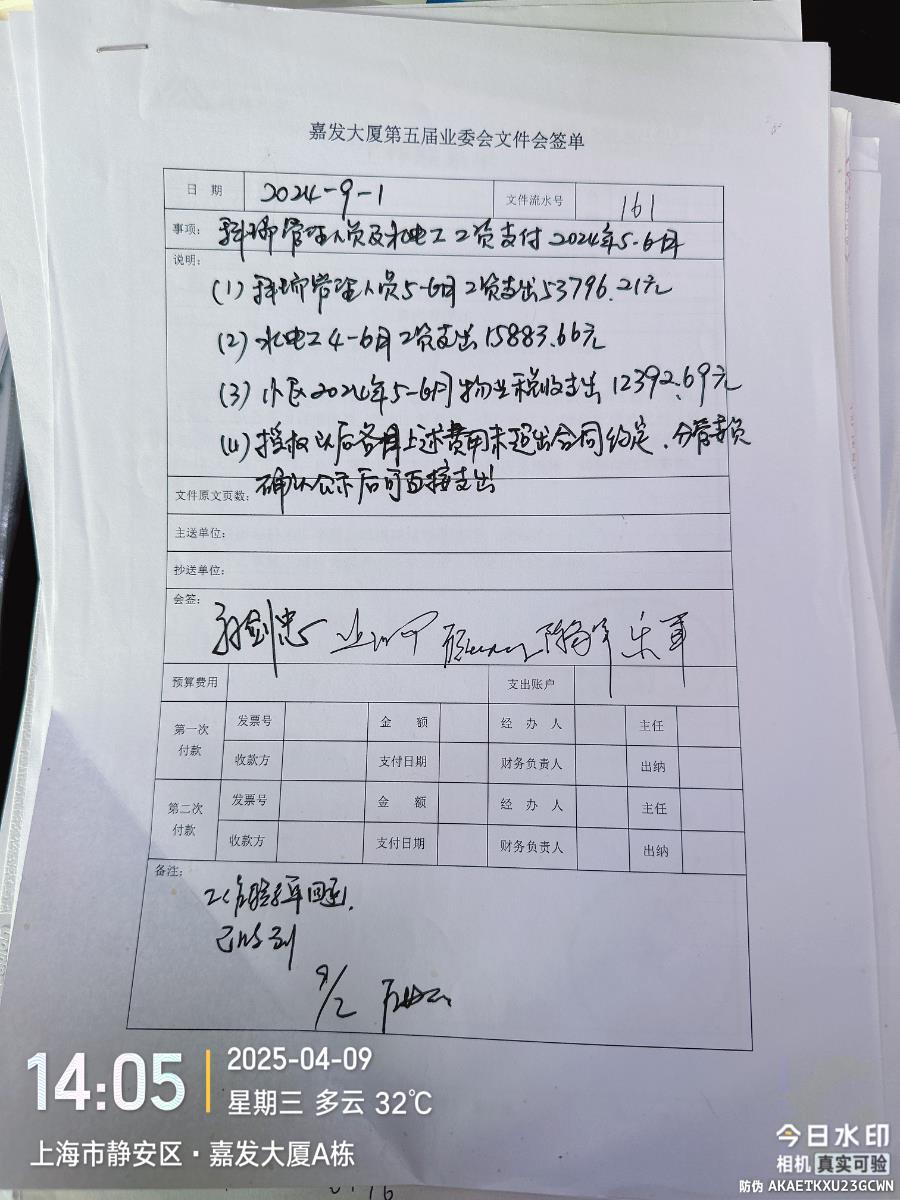 嘉发大厦第五届业委会文件会签单
日 期 2024-9-1 文件流水号 161
事项: 科瑞管理人员及水电工工资支付2024年5-6月
说明:
(1) 科瑞管理人员5-6月工资支出53796.21元
(2) 水电工4-6月工资支出15883.66元
(3) 小区2024年5-6月物业税收支出12392.69元
(4) 授权以后各月上述费用未超出合同约定,分管委员
确认公示后可直接支出
文件原文页数:
主送单位:
抄送单位:
会签:
预算费用 支出账户
第一次付款 发票号 金 额 经 办 人 主任
收款方 支付日期 财务负责人 出纳
第二次付款 发票号 金 额 经 办 人 主任
收款方 支付日期 财务负责人 出纳
备注:
已收到
9/2
14:05
2025-04-09
星期三 多云 32℃
上海市静安区·嘉发大厦A栋
今日水印
相机 真实可验
防伪 AKAETKXU23GCWN